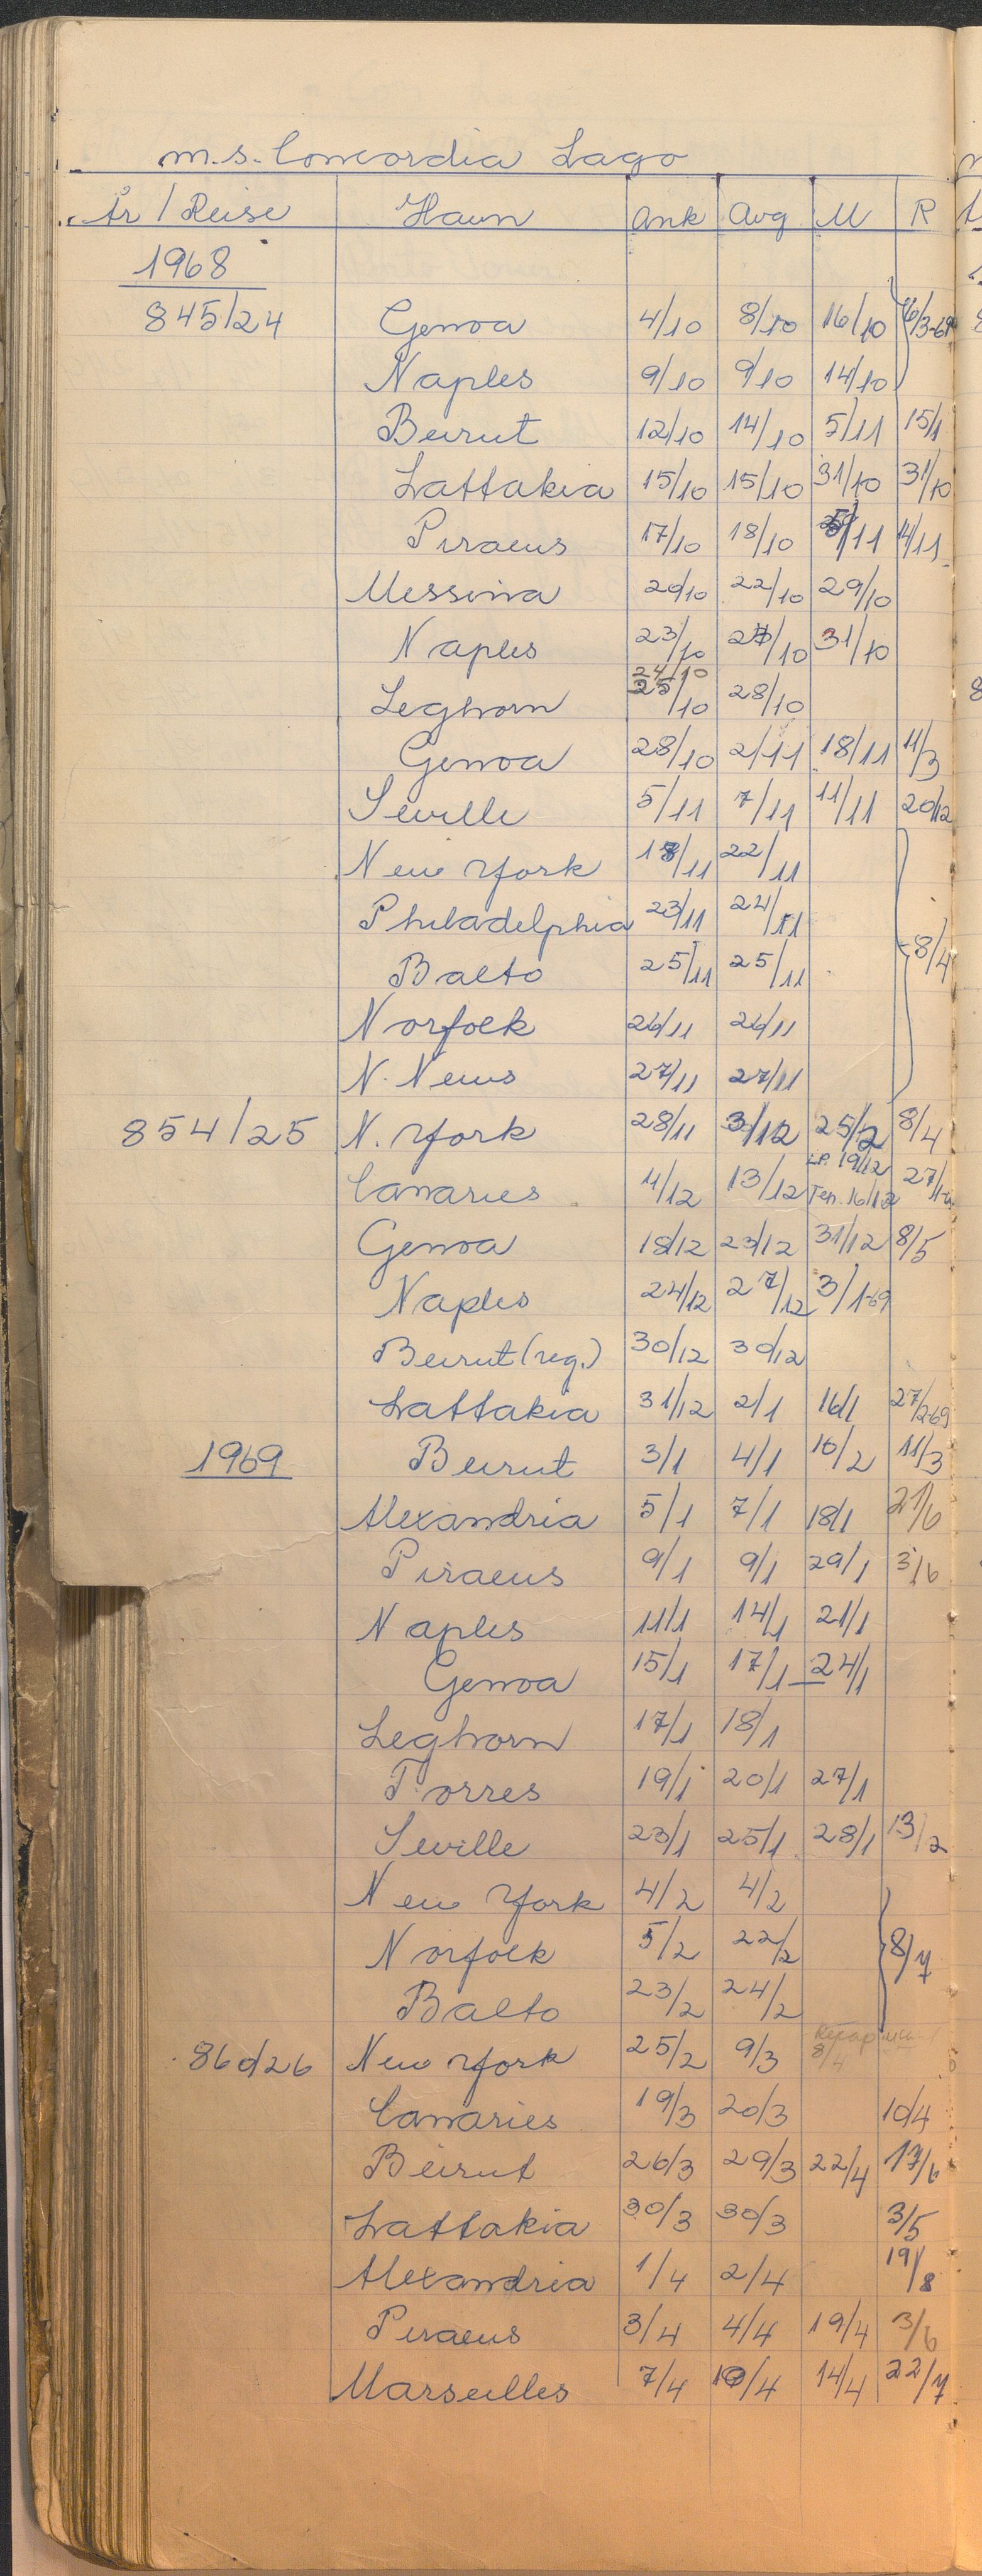 m.s. Concordia Lago
År / Reise Havn Ank Avg M R
1968
845/24 Genoa 4/10 8/10 16/10 6/3-69
Naples 9/10 9/10 14/10
Beirut 12/10 14/10 5/11 15/1
Lattakia 15/10 15/10 31/10 31/10
Piraeus 17/10 18/10 11 4/11
Messina 20/10 22/10 29/10
Naples 23/10 10 31/10
24/10
Leghorn 25/10 28/10
Genoa 28/10 2/11 18/11 11/3
Seville 5/11 7/11 11/11 20/12
New York 11 22/11
Philadelphia 23/11 24/11
Balto 25/11 25/11 8/4
Norfolk 26/11 26/11
N. News 27/11 27/11
854/25 N. York 28/11 3/12 25/2 8/4
L.P. 19/12
Canaries 11/12 13/12 Ten. 16/12
Genoa 18/12 23/12 31/12 8/5
Naples 24/12 27/12 3/1-69
Beirut (reg.) 30/12 30/12
Lattakia 31/12 2/1 16/1 27/2-69
1969 Beirut 3/1 4/1 10/2 11/3
Alexandria 5/1 7/1 18/1 21/6
Piraeus 9/1 9/1 29/1 3/6
Naples 11/1 14/1 21/1
Genoa 15/1 17/1 24/1
Leghorn 17/1 18/1
Torres 19/1 20/1 27/1
Seville 23/1 25/1 28/1 13/2
New York 4/2 4/2
Norfolk 5/2 22/2 8/7
Balto 23/2 24/2
860/26 New York 25/2 9/3 8/4
Canaries 19/3 20/3 10/4
Beirut 26/3 29/3 22/4 17/6
Lattakia 30/3 30/3 3/5
Alexandria 1/4 2/4 19/8
Piraeus 3/4 4/4 19/4 3/6
Marseilles 7/4 10/4 14/4 22/7